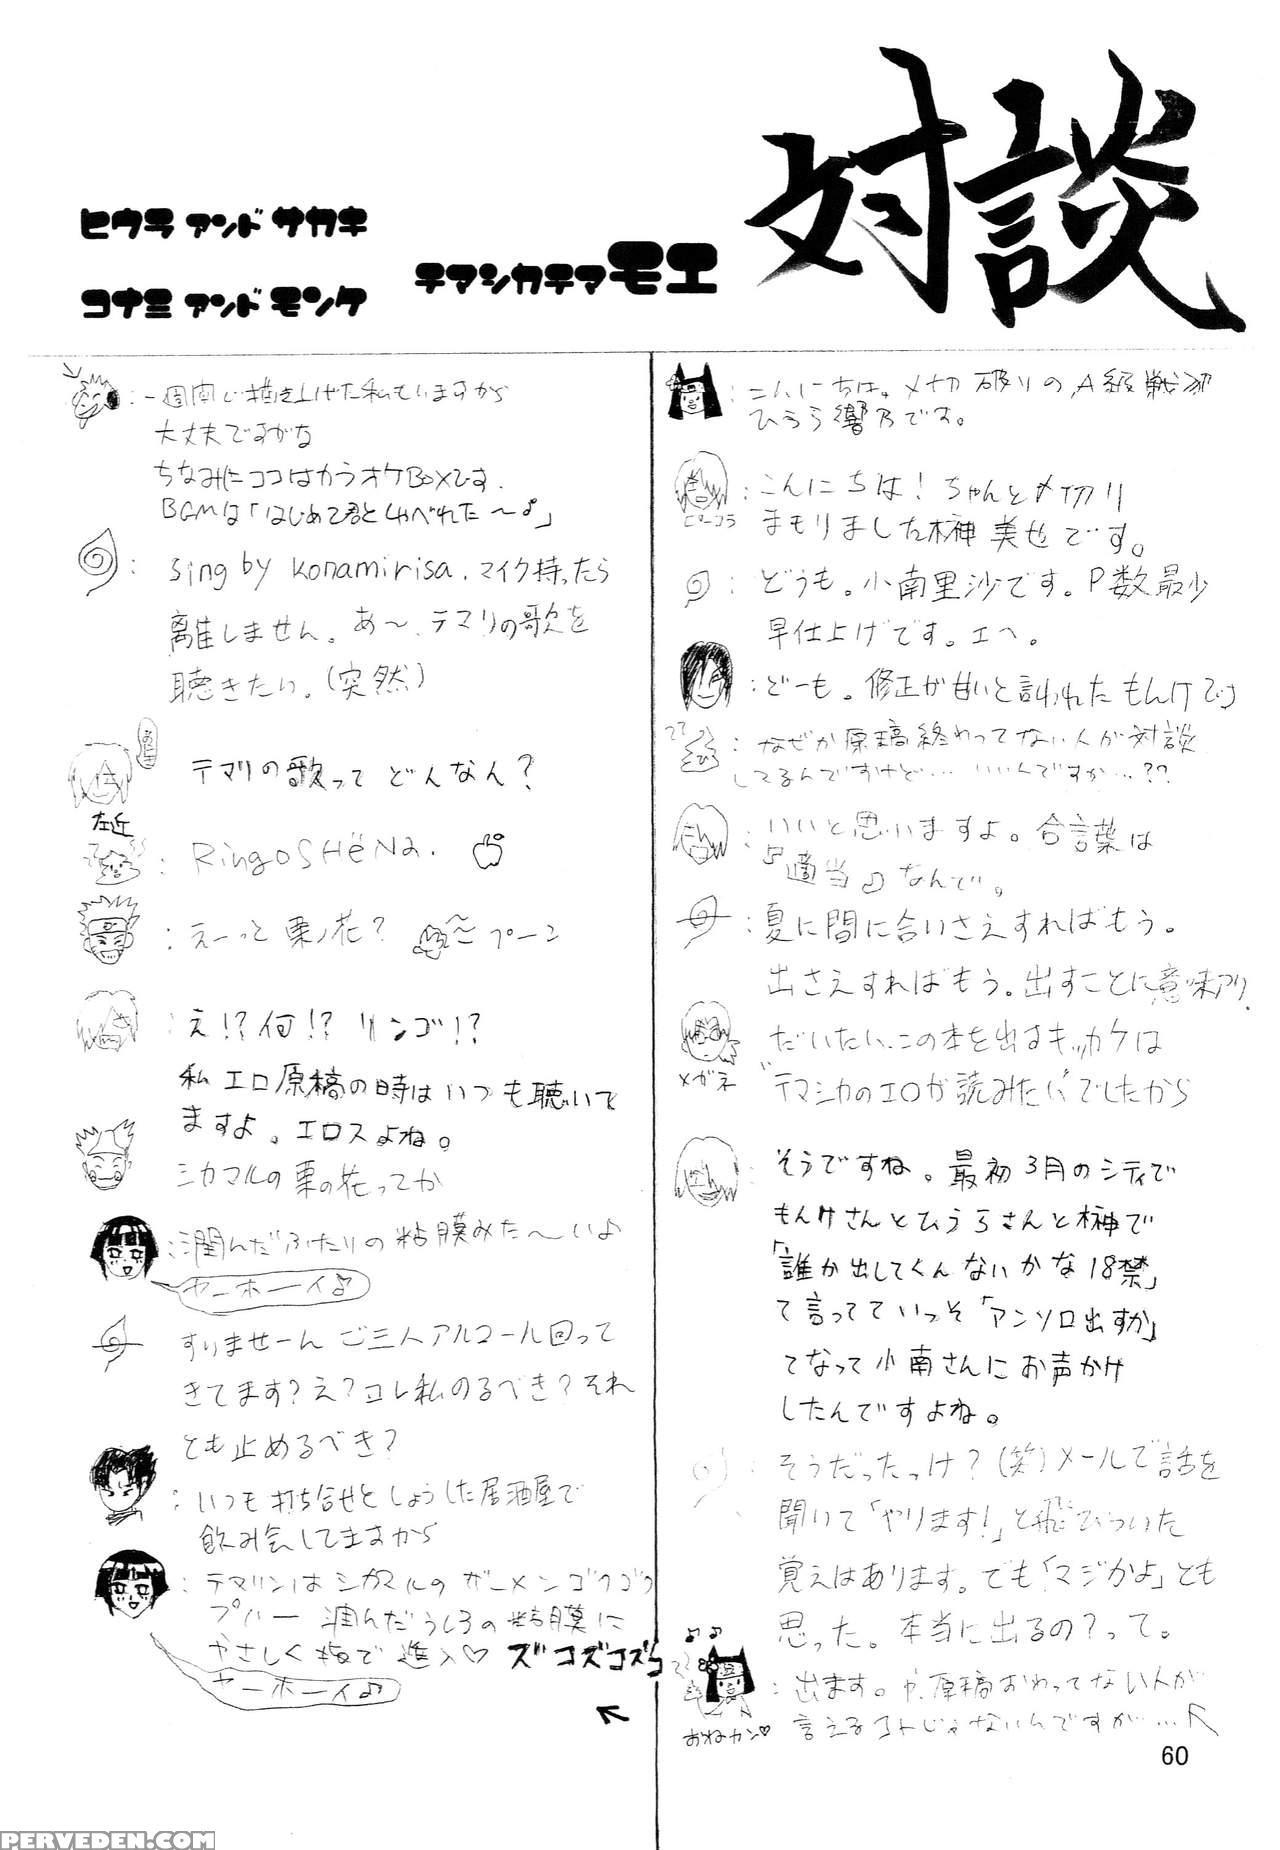 対談
テマシカテマモエ
ヒウラ アンド サカキ
コナミ アンド モンケ
こんにちは。〆切破りのA級戦犯
ひうら響乃です。
こんにちは！ちゃんと〆切り
ピーコラ
まもりました榊 美也です。
どうも。小南里沙です。P数最少
早仕上げです。エヘ。
どーも。修正が甘いと言われたもんけです
なぜか原稿終わってない人が対談
してるんですけど…いいんですか…??
いいと思いますよ。合言葉は
『適当♪』なんで。
夏に間に合いさえすればもう。
出さえすればもう。出すことに意味アリ
だいたい、この本を出すキッカケは
メガネ
"テマシカのエロが読みたい"でしたから
そうですね。最初3月のシティで
もんけさんとひうらさんと榊で
「誰か出してくんないかな18禁」
て言ってていっそ「アンソロ出すか」
てなって小南さんにお声かけ
したんですよね。
そうだったっけ？(笑)メールで話を
聞いて「やります!」と飛びついた
覚えはあります。でも「マジかよ」とも
思った。本当に出るの？って。
出ます。や、原稿おわってない人が
言えるコトじゃないんですが…
おねカン♡
一週間で描き上げた私ていますから
大丈夫ですがな
ちなみにココはカラオケBoxです.
BGMは「はじめて君としゃべれた〜♪」
sing by konamirisa. マイク持ったら
離しません。あ〜、テマリの歌を
聴きたい。(突然)
テマリの歌って どんなん？
左近
RingOSHëNa.
えーっと 栗ノ花？ 〜プーン
え!?何!? リンゴ!?
私 エロ原稿の時は いつも聴いて
ますよ。エロスよね。
シカマルの栗の花ってか
潤んだふたりの粘膜みた〜いよ
ヤーホーイ♪
すいませーん ご三人アルコール回って
きてます？え？コレ私のるべき？それ
とも止めるべき？
いつも打ち合せとしょうした居酒屋で
飲み会してますから
テマリンはシカマルの ザーメンゴクゴク
プハー 潤んだうしろの粘膜に
やさしく指で進入♡ ズコズコズコ
ヤーホーイ♪
60
PERVEDEN.COM